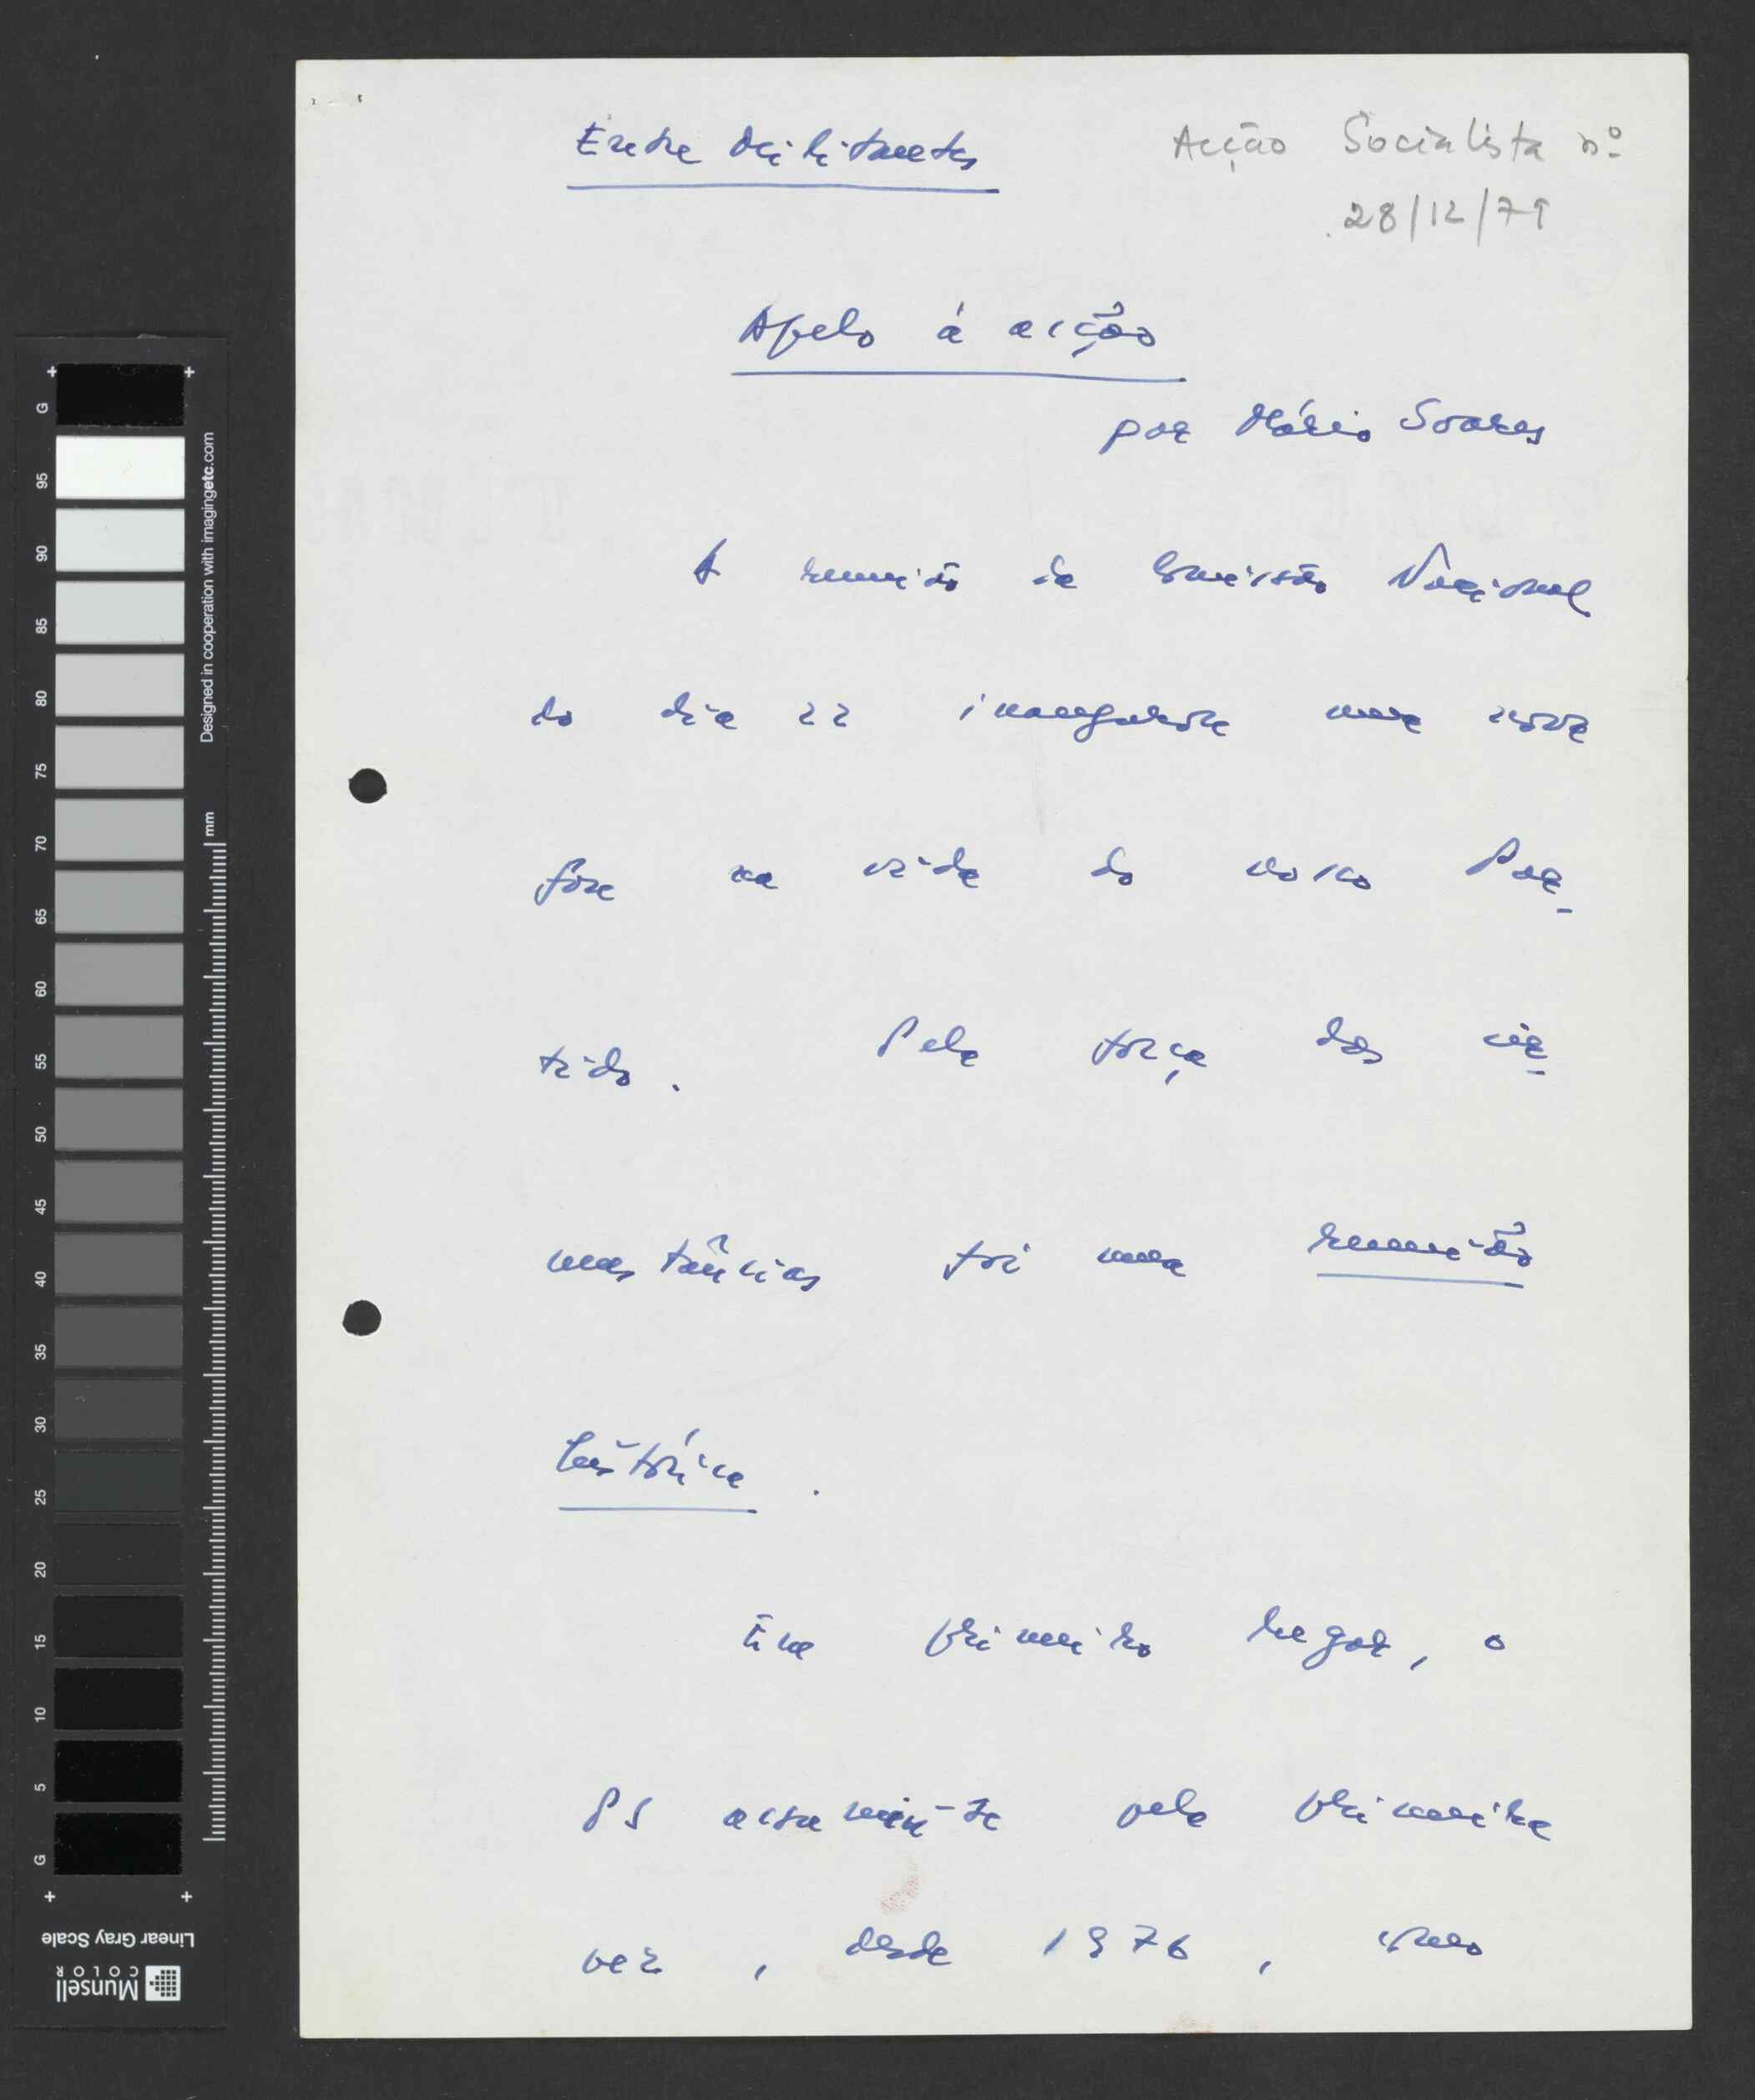 Entre Militantes
Acção Socialista nº
28/12/79
Apelo à acção
por Mário Soares
A reunião da Comissão Nacional
do dia 22 inaugurou uma nova
fase na vida do nosso Par-
tido. Pela força das cir-
cunstâncias foi uma reunião
histórica.
Em primeiro lugar, o
PS assumiu-se pela primeira
vez, desde 1976, como
G 95 90 85 80 75 70 65 60 55 50 45 40 35 30 25 20 15 10 5 G
Designed in cooperation with imagingetc.com
mm
Linear Gray Scale
Munsell
COLOR